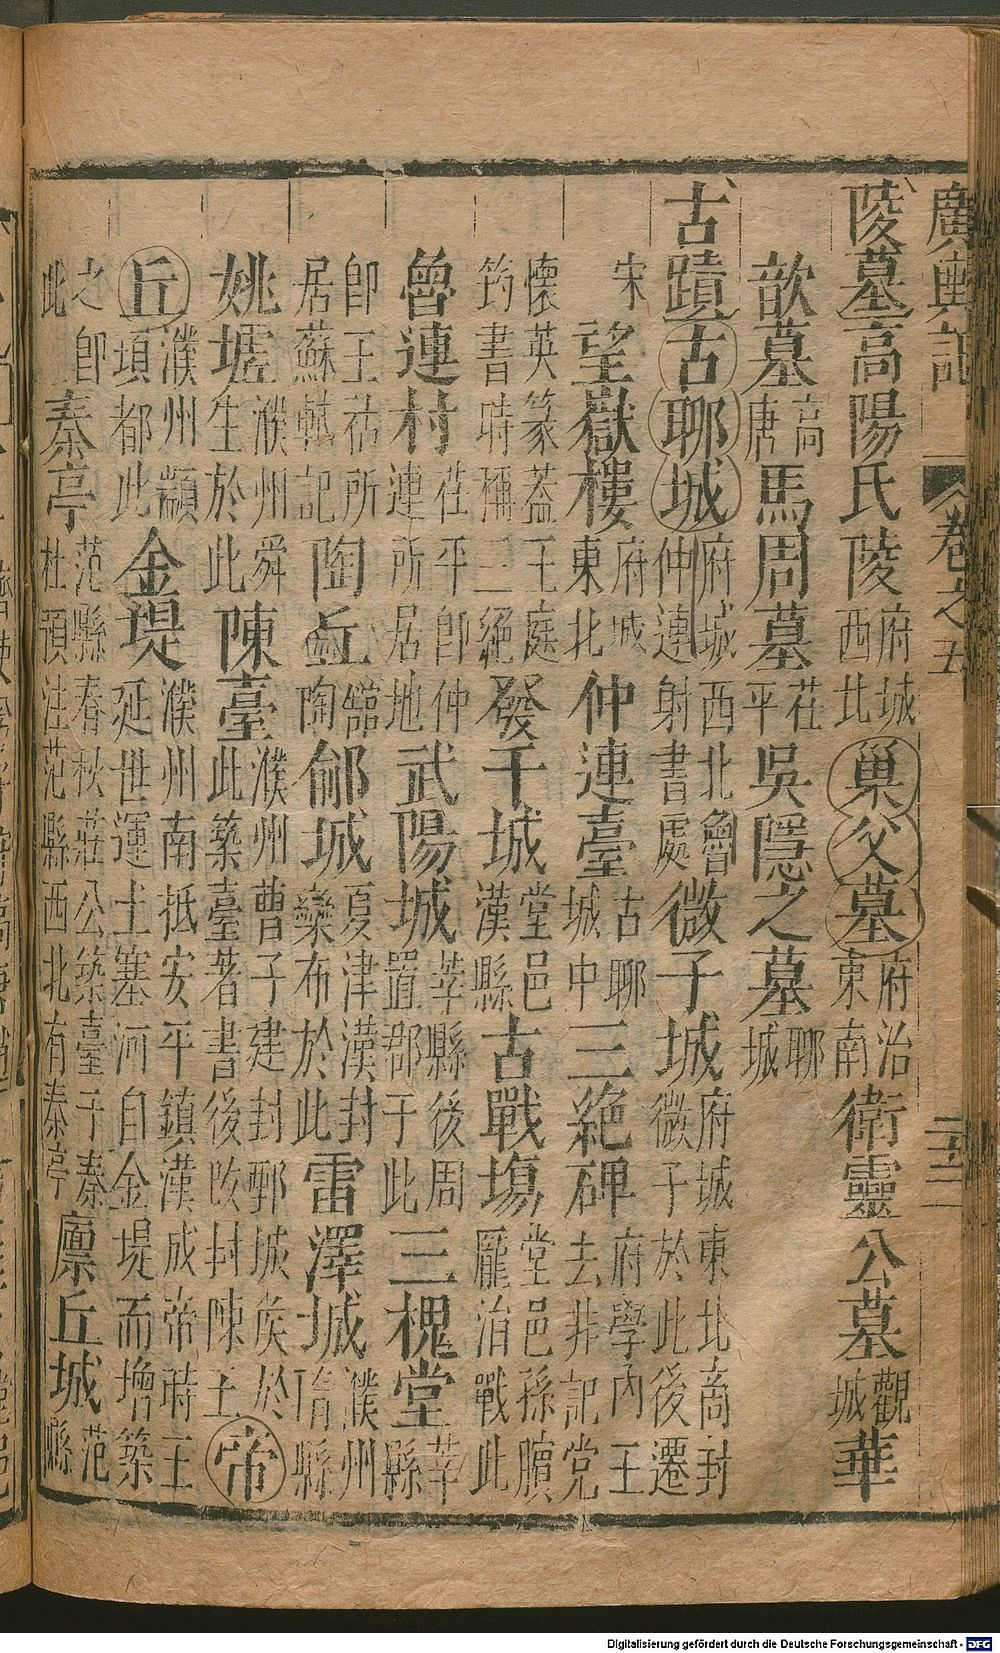 廣輿記 卷之五
陵墓高陽氏陵府城西北巢父墓府治東南衛靈公墓觀城華
歆墓高唐馬周墓茌平吳隱之墓聊城
古蹟古聊城府城西北魯仲連射書處微子城府城東北啇封微子於此後遷
宋望嶽樓府城東北仲連臺古聊城中三絕碑府學內王去非記党
懷英篆蓋王庭筠書時稱三絕發干城堂邑漢縣古戰塲堂邑孫臏龐涓戰此
魯連村茌平卽仲連所居地武陽城莘縣後周置郡于此三槐堂莘縣
卽王祜所居蘇軾記陶丘館陶鄃城夏津漢封欒布於此雷澤城濮州隋縣
姚墟濮州舜生於此陳臺濮州曹子建封鄄城侯於此築臺著書後改封陳王帝
丘濮州顓頊都此金堤濮州南抵安平鎮漢成帝時王延世運土塞河自金堤而增築
之卽此秦亭范縣春秋莊公築臺于秦杜預注范縣西北有秦亭廩丘城范縣
Digitalisierung gefördert durch die Deutsche Forschungsgemeinschaft - DFG